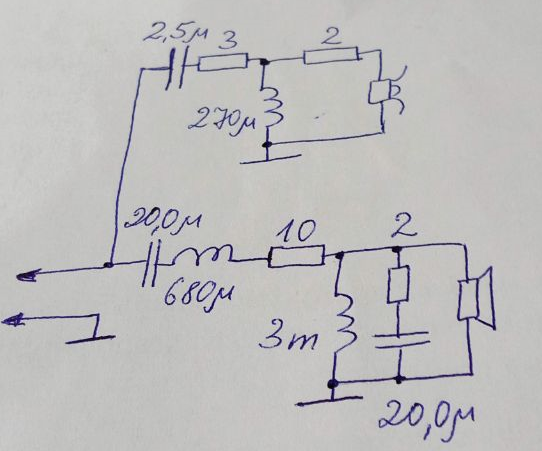 2,5μ
3
2
270μ
20,0μ
10
2
680μ
3m
20,0μ